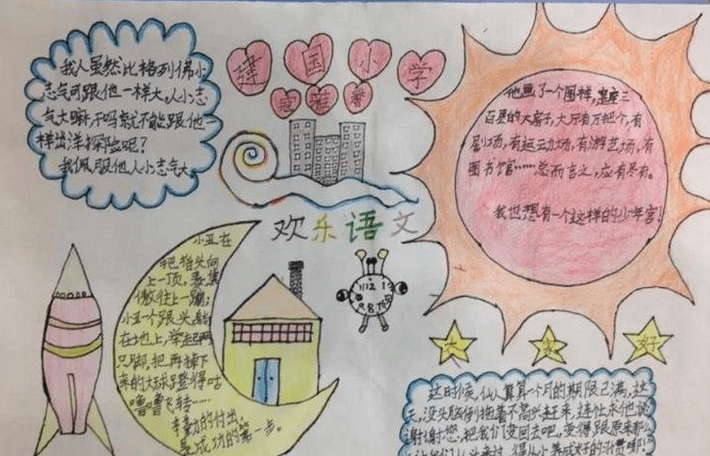 我人虽然比格列佛小
志气可跟他一样大,人小志
气大嘛,干吗就不能跟他一
样出洋探险呢?
我佩服他人小志气大
建国小学
他画了一个图样,
百层的大房子,大厅有万把个,有
有运动场,有游艺场,有
图书馆……总而言之,应有尽有。
我也想有一个这样的少年宫!
欢乐语文
小丑在
把指头向
上一顶,
傲往上一蹦;
小丑一个跟头
在地上,举起两
只脚,把再掉下
来的大球蹬得咕
噜噜飞转……
辛勤的付出,
是成功的第一步。
大 家 好
这时候,仙人算算一个月的期限已满,这
天,没头脑何拖着不高兴赶来,连忙求他说
谢谢您,把我们变回去吧,变得跟原来那么